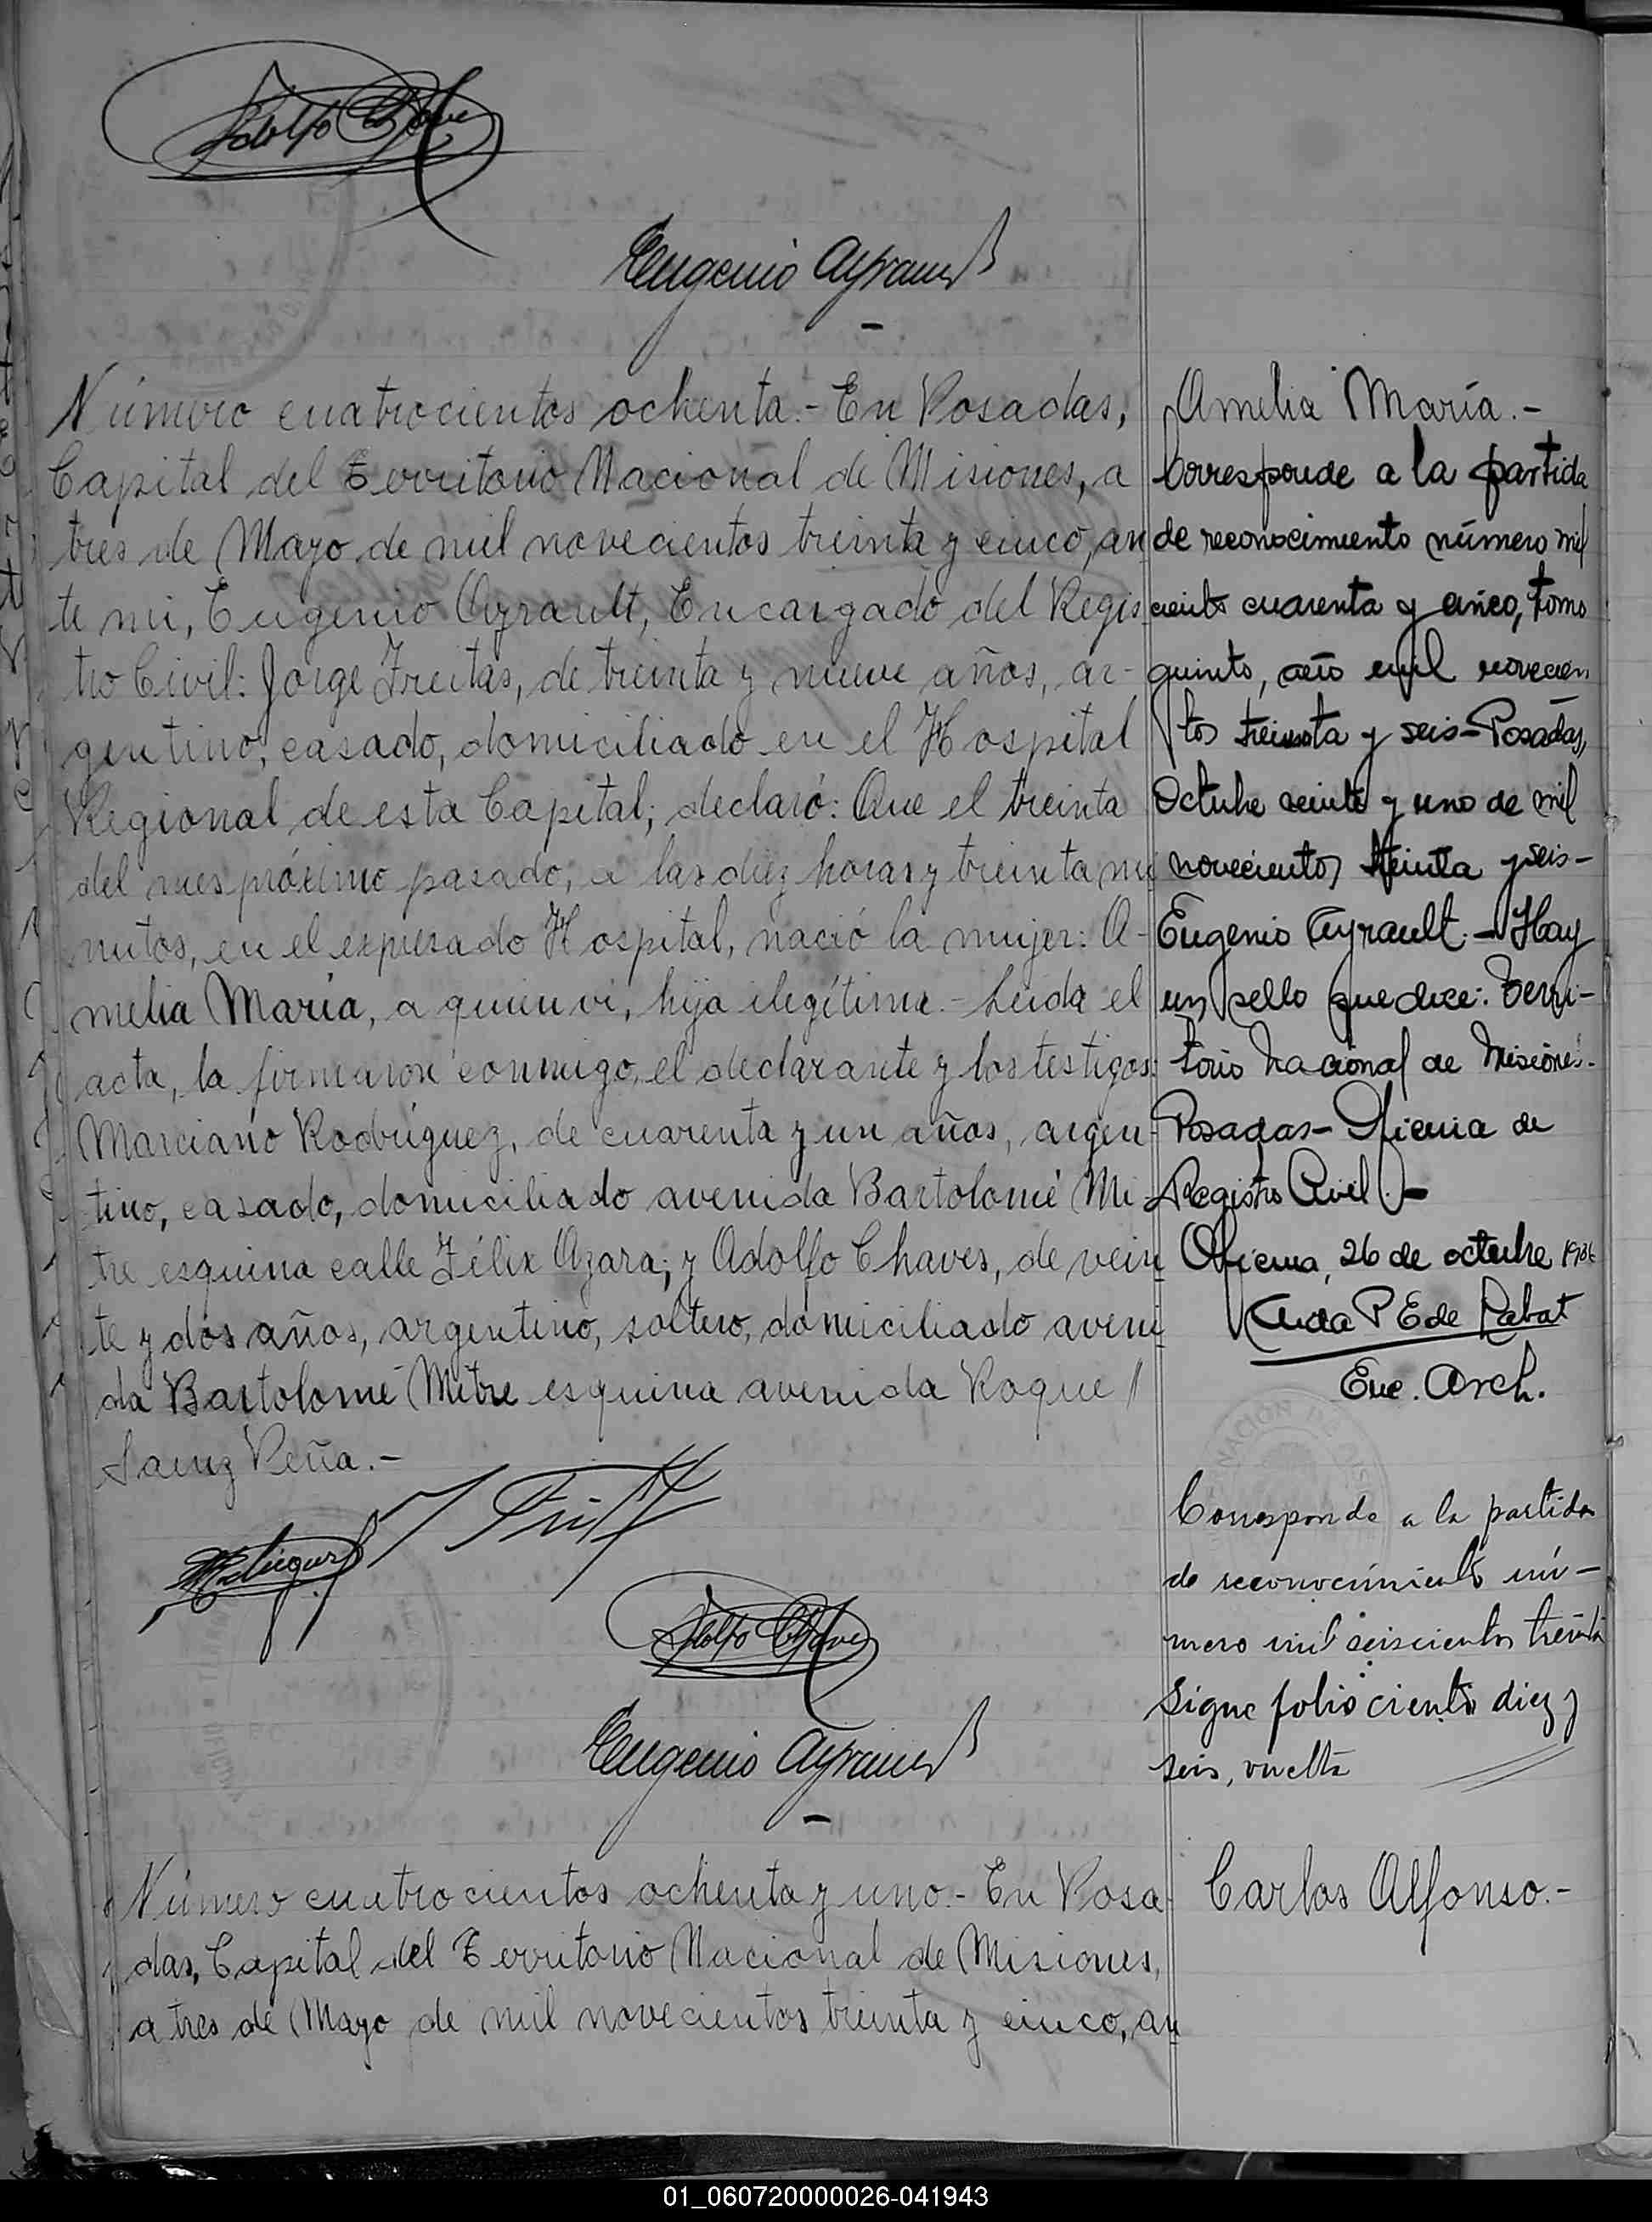 Adolfo Chaves
Eugenio Ayrault
Número cuatrocientos ochenta.- En Posadas,
Capital del Territorio Nacional de Misiones, a
tres de Mayo de mil novecientos treinta y cinco, an
te mi, Eugenio Ayrault, Encargado del Regis
tro Civil: Jorge Freitas, de treinta y nueve años, ar-
gentino, casado, domiciliado en el Hospital
Regional de esta Capital; declaró: Que el treinta
del mes próximo pasado, a las diez horas y treinta mi
nutos, en el expresado Hospital, nació la mujer: A-
melia María, a quien vi, hija ilegítima.- Leída el
acta, la firmaron conmigo, el declarante y los testigos:
Marciano Rodríguez, de cuarenta y un años, argen-
tino, casado, domiciliado avenida Bartolomé Mi-
tre esquina calle Félix Azara; y Adolfo Chaves, de vein
te y dos años, argentino, soltero, domiciliado aveni
da Bartolomé Mitre esquina avenida Roque //
Saenz Peña.-
Adolfo Chaves
Eugenio Ayrault
Número cuatrocientos ochenta y uno.- En Posa
das, Capital del Territorio Nacional de Misiones,
a tres de Mayo de mil novecientos treinta y cinco, an
Amelia María.-
Corresponde a la partida
de reconocimiento número mil
ciento cuarenta y cinco, tomo
quinto, año mil novecien
tos treinta y seis- Posadas,
Octubre veinte y uno de mil
novecientos treinta y seis-
Eugenio Ayrault.- Hay
un sello que dice: Terri-
torio Nacional de Misiones.-
Posadas- Oficina de
Registro Civil.-
Oficina, 26 de octubre 1936
P E de Labat
Enc. Arch.
Corresponde a la partida
de reconocimiento nú-
mero mil seiscientos treinta
Sigue folio ciento diez y
seis, vuelta
Carlos Alfonso.-
01_060720000026-041943